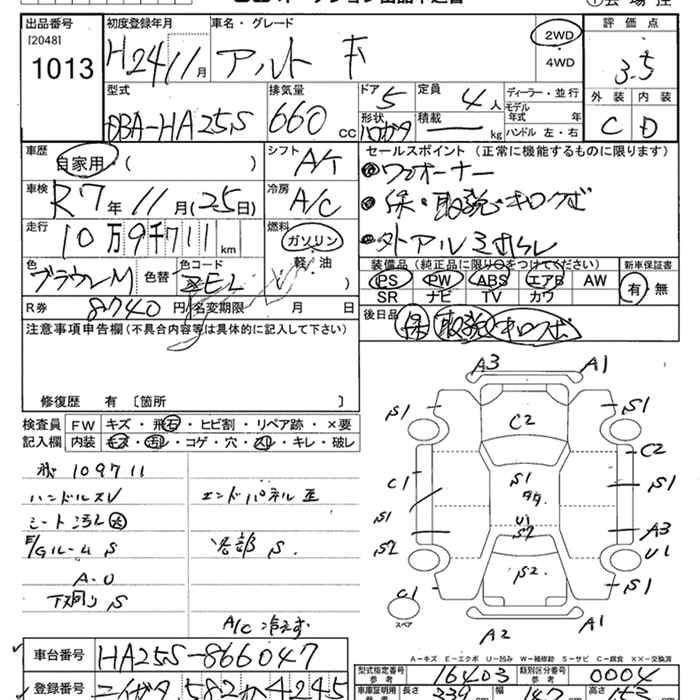 出品番号 初度登録年月 車名・グレード 2WD 評価点
[2048]
1013 H24 11月 アルト 4WD 3.5
外装 内装
C D
型式 排気量 ドア 定員 ディーラー・並行
DBA-HA25S 660 CC 5 4人 モデル年式 年
形状 積載 kg ハンドル 左・右
車歴 シフト セールスポイント (正常に機能するものに限ります)
自家用 ( ) A/T ワンオーナー
車検 冷房 保・取説・キロクボ
R7年11月(25日) A/C
走行 燃料
10万9千711km ガソリン
軽・油
色 色替 色コード 装備品 (純正品に限り○をつけてください) 新車保証書
ブラウンM ZEL PS PW ABS エアB AW 有 無
SR ナビ TV カワ
R券 8740円 名変期限 月 日 後日品 保 取説 キロクボ
注意事項申告欄 (不具合内容等は具体的に記入して下さい)
修復歴 有 〔箇所 〕
検査員 FW キズ・飛石・ヒビ割・リペア跡・×要
記入欄 内装 キズ・汚レ・コゲ・穴・スレ・キレ・破レ
109711
ハンドルスレ エンドパネル歪
シート汚レ大
E/Gルーム S 各部 S
A-U
下廻り S
A/C 冷えず
A3 A1
S1 C2 S1
C2
C1 S1 S1
S1 U1 A3
S2 S2 U1
S2 S1
C1
スペア A2 A1
A－キズ E－エクボ U－凹み W－補修跡 S－サビ C－腐食 ××－交換済
車台番号 HA25S-866047 型式指定番号 参考 16403 類別区分番号 参考 0004
登録番号 ニイガタ 582 4245 車庫証明用 参考 長さ 339 幅 高さ